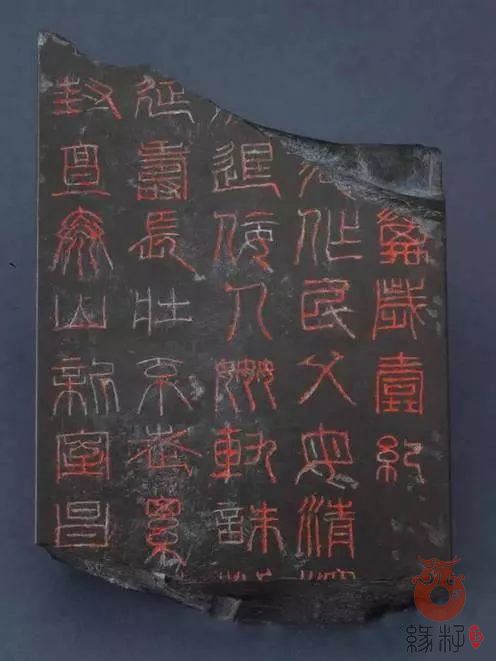 萬歲壹紀
作民父母清
退佞人姦軌誅
延壽長壯不老累
封亶泰山新室昌
緣籽